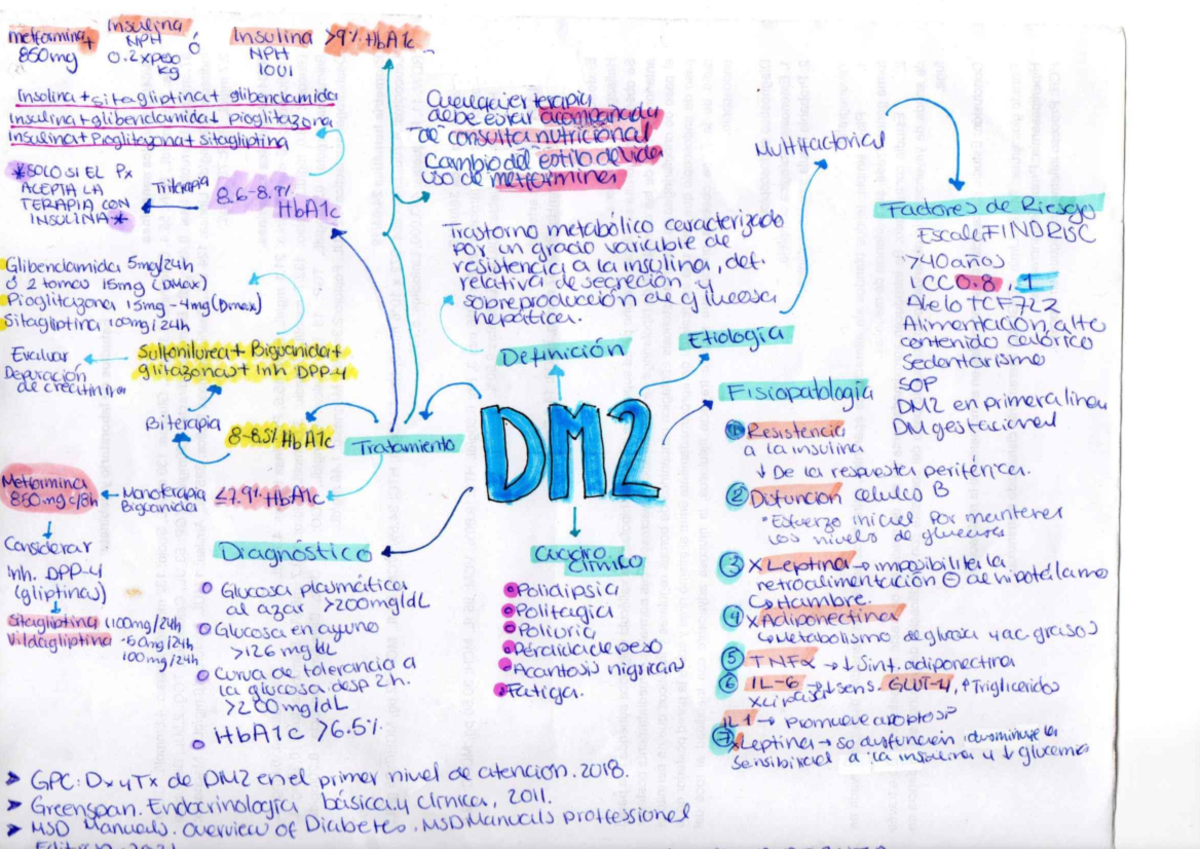 metformina + 850mg
Insulina NPH 0.2 x peso kg
ó
Insulina NPH 10UI
>9% HbA1c
Insolina + sitagliptina + glibenclamida
Insulina + glibenclamida + pioglitazona
Insulina + Pioglitazona + sitagliptina
*SOLO SI EL Px
ACEPTA LA
TERAPIA CON
INSULINA*
Triterapia
8.6-8.9%
HbA1c
Cualquier terapia
debe estar acompañada
de consulta nutricional
Cambio del estilo de vida
uso de metformina
Glibenclamida 5mg/24h
ó 2 tomas 15mg (DMax)
Pioglitazona 15mg-4mg (Dmax)
Sitagliptina 100mg/24h
Evaluar
Depuración
de creatinina
Sulfonilurea + Biguanida +
glitazonas + Inh DPP-4
Biterapia
8-8.5% HbA1c
Tratamiento
Metformina
850mg c/8h
Monoterapia
Biguanida
≤7.9% HbA1c
Considerar
Inh. DPP-4
(gliptinas)
Sitagliptina (100mg/24h
Vildagliptina -50mg/24h
100mg/24h
DM2
Definición
Trastorno metabólico caracterizado
por un grado variable de
resistencia a la insulina, def.
relativa de secreción y
sobreproducción de glucosa
hepática.
Etiología
Multifactorial
Factores de Riesgo
Escala FINDRISC
>40 años
ICC 0.8, 1
Alelo TCF7L2
Alimentación alto
contenido calórico
Sedentarismo
SOP
DM2 en primera línea
DM gestacional
Fisiopatología
① Resistencia
a la insulina
↓ De la respuesta periférica.
② Disfunción célula B
•Esfuerzo inicial por mantener
los niveles de glucosa
③ X Leptina → imposibilita la
retroalimentación ⊖ al hipotálamo
↳ Hambre.
④ x Adiponectina
↳ Metabolismo de glucosa y ac. grasos
⑤ TNFα → ↓ Sint. adiponectina
⑥ IL-6 → ↓ sens. GLUT-4, ↑ Triglicéridos
x Lipasa
IL1 → Promueve apoptosis
⑦ xLeptina → so disfunción disminuye la
sensibilidad a la insulina y ↓ glucemia
Diagnóstico
Glucosa plasmática
al azar >200mg/dL
Glucosa en ayuno
>126 mg/dL
Curva de tolerancia a
la glucosa desp 2h.
>200mg/dL
HbA1c >6.5%
Cuadro
Clínico
Polidipsia
Polifagia
Poliuria
Pérdida de peso
Acantosis nigricans
Fatiga.
➤ GPC: Dx y Tx de DM2 en el primer nivel de atención. 2018.
➤ Greenspan. Endocrinología básica y clínica, 2011.
➤ MSD Manuals. Overview of Diabetes. MSD Manuals proffessional